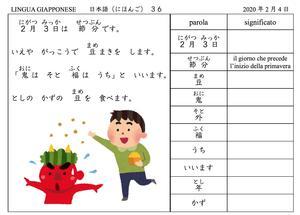 LINGUA GIAPPONESE 日本語（にほんご） ３６ 2020年2月4日
にがつ みっか せつぶん
２月 ３日は 節分です。
まめ
いえや がっこうで 豆まきを します。
おに ふく
「鬼は そと 福は うち」と いいます。
まめ た
としの かずの 豆を 食べます。
parola significato
にがつ みっか
２月 ３日
せつぶん
節分 il giorno che precede l'inizio della primavera
まめ
豆
おに
鬼
そと
外
ふく
福
うち
いいます
とし
年
かず